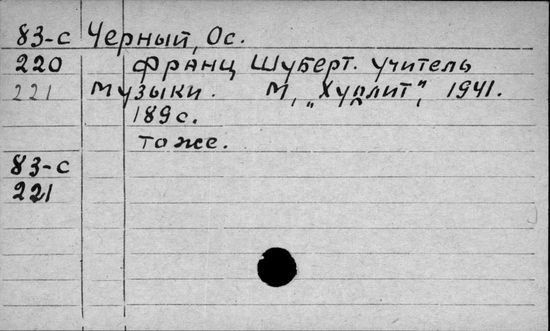 83-с Черный, Ос.
220 Франц Шуберт. учитель
221 музыки. М, "Худлит", 1941.
189с.
тоже.
83-с
221